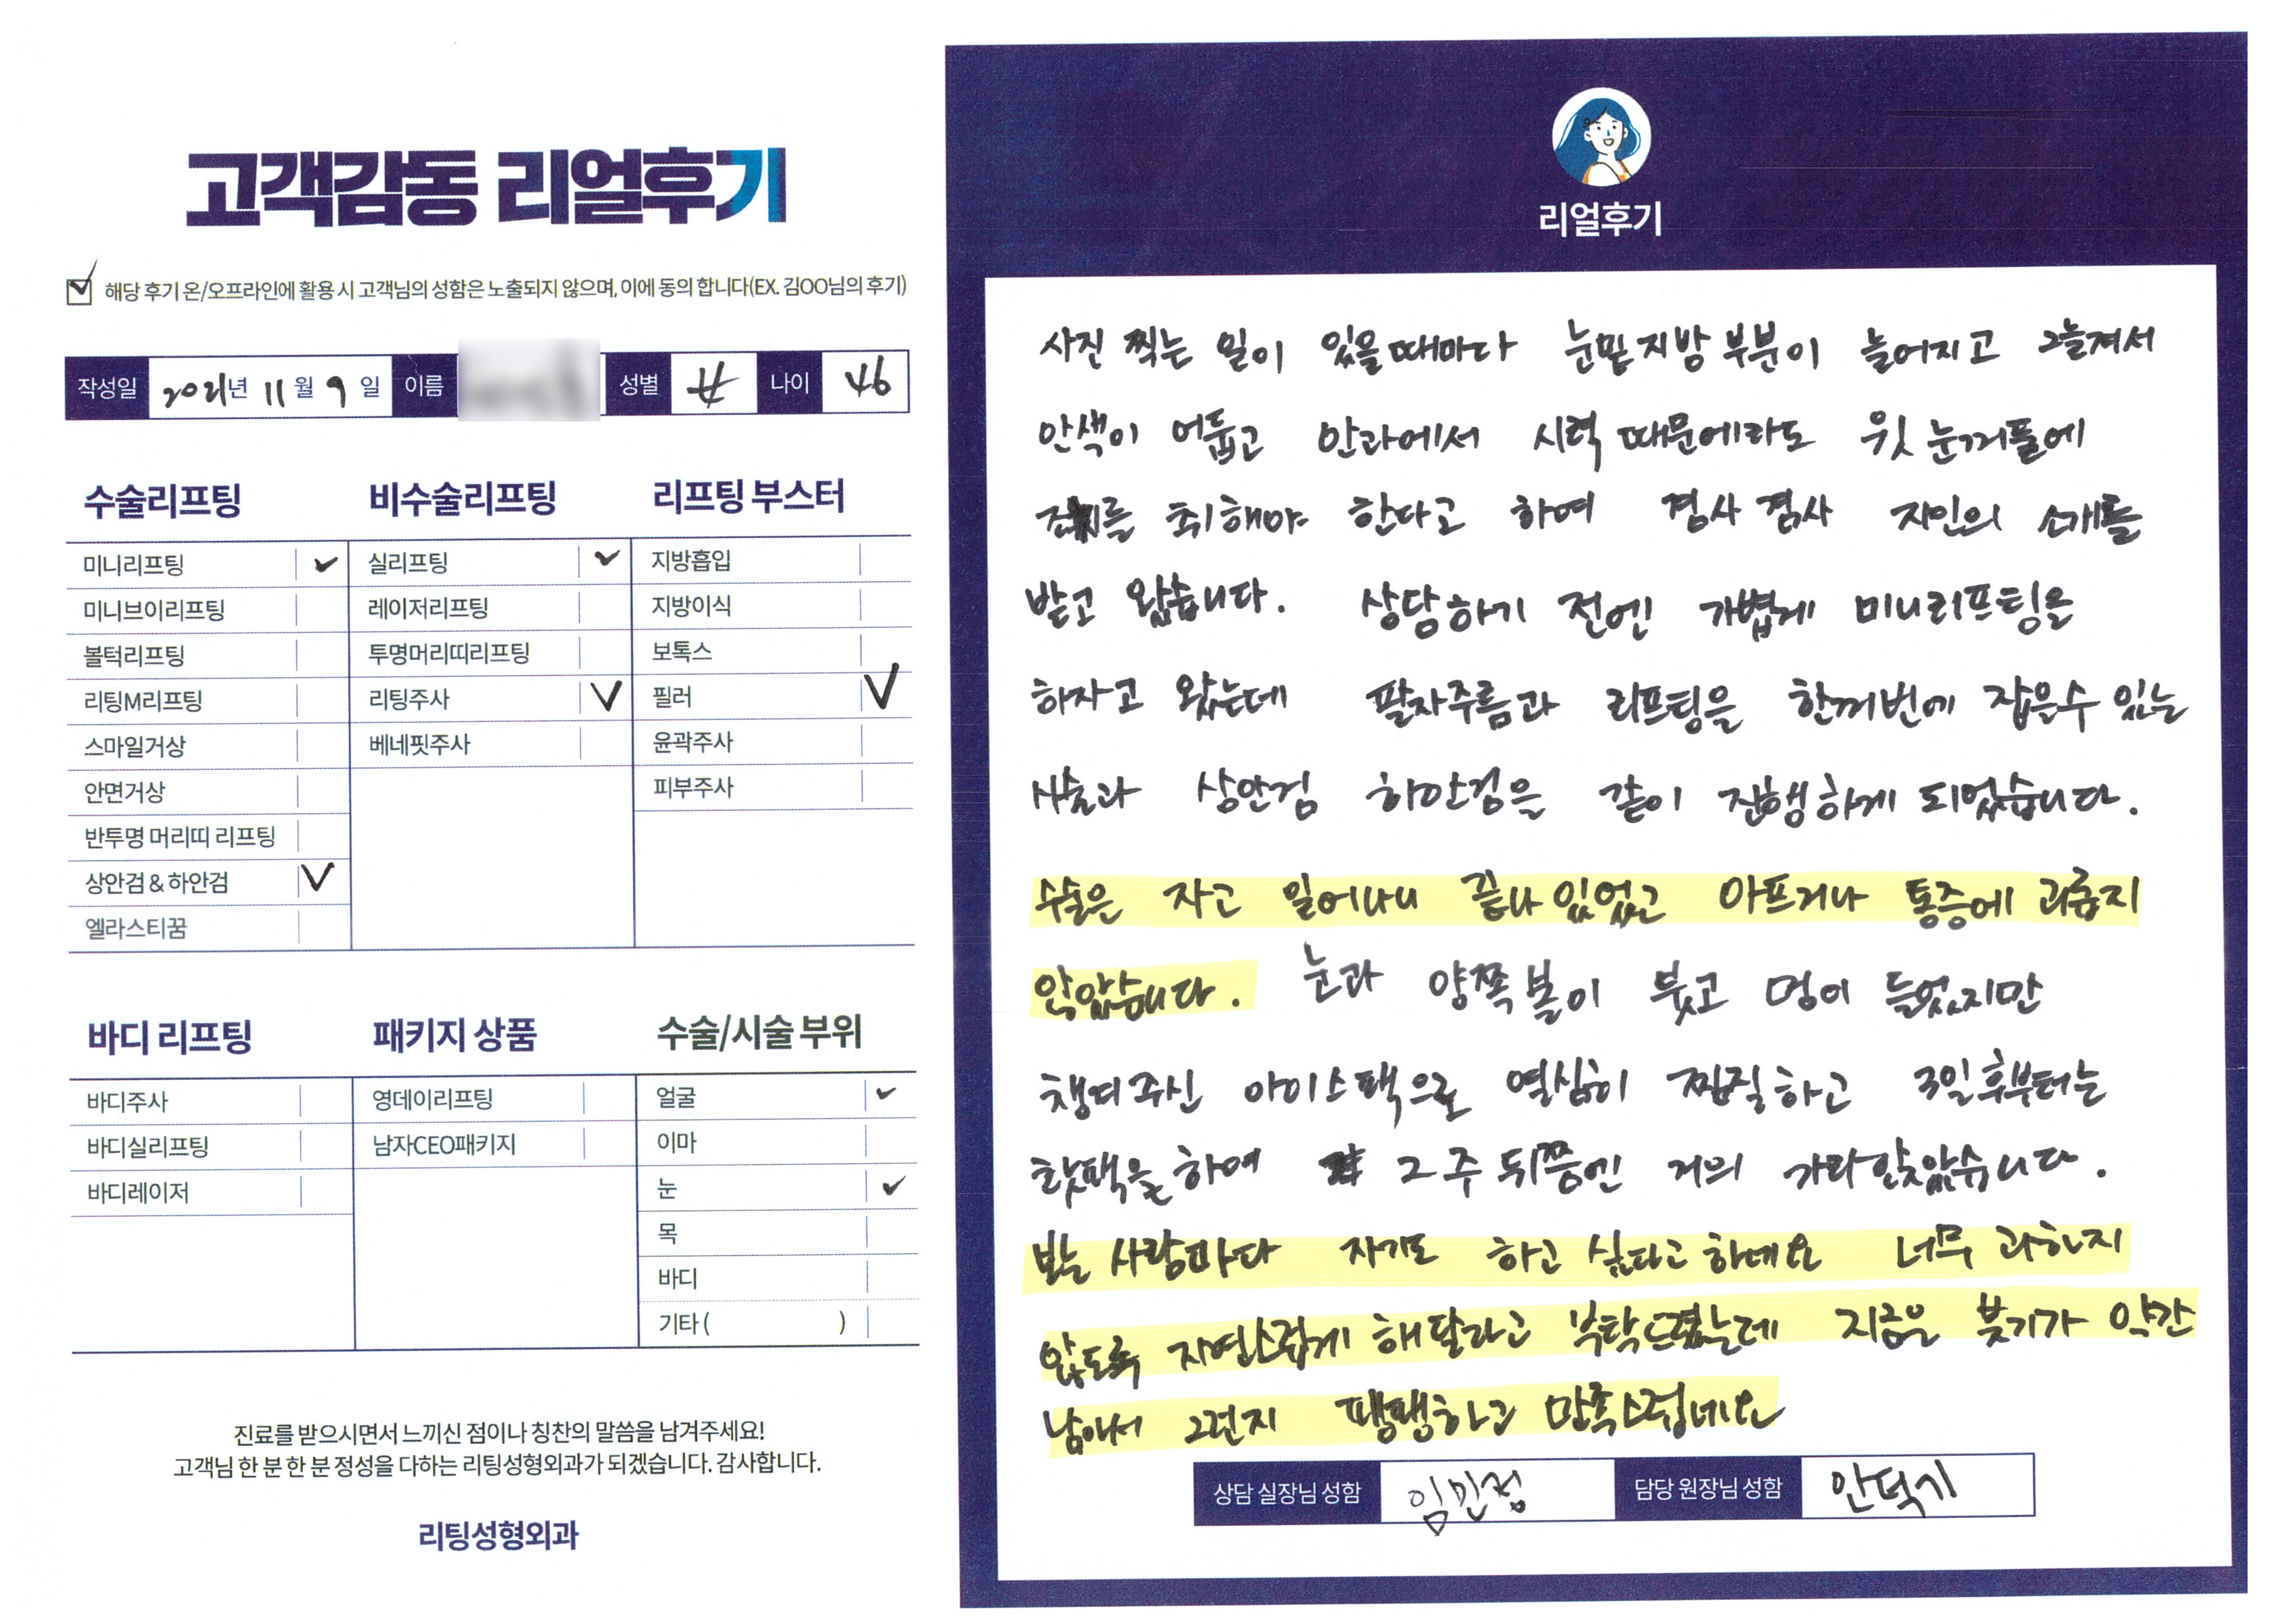 고객감동 리얼후기
해당 후기 온/오프라인에 활용 시 고객님의 성함은 노출되지 않으며, 이에 동의 합니다(EX. 김OO님의 후기)
작성일 2021년 11월 9일 이름 성별 女 나이 46
수술리프팅
미니리프팅 ✓
미니브이리프팅
볼턱리프팅
리팅M리프팅
스마일거상
안면거상
반투명 머리띠 리프팅
상안검 & 하안검 ✓
엘라스티꿈
비수술리프팅
실리프팅 ✓
레이저리프팅
투명머리띠리프팅
리팅주사 ✓
베네핏주사
리프팅 부스터
지방흡입
지방이식
보톡스
필러 ✓
윤곽주사
피부주사
바디 리프팅
바디주사
바디실리프팅
바디레이저
패키지 상품
영데이리프팅
남자CEO패키지
수술/시술 부위
얼굴 ✓
이마
눈 ✓
목
바디
기타 ( )
진료를 받으시면서 느끼신 점이나 칭찬의 말씀을 남겨주세요!
고객님 한 분 한 분 정성을 다하는 리팅성형외과가 되겠습니다. 감사합니다.
리팅성형외과
리얼후기
사진 찍는 일이 있을때마다 눈밑지방 부분이 늘어지고 그늘져서
안색이 어둡고 안과에서 시력 때문에라도 윗 눈꺼풀에
조치를 취해야 한다고 하여 겸사 겸사 지인의 소개를
받고 왔습니다. 상담하기 전엔 가볍게 미니리프팅을
하자고 왔는데 팔자주름과 리프팅을 한꺼번에 잡을수 있는
시술과 상안검 하안검을 같이 진행하게 되었습니다.
수술은 자고 일어나니 끝나 있었고 아프거나 통증에 괴롭지
않았습니다. 눈과 양쪽 볼이 붓고 멍이 들었지만
챙겨주신 아이스팩으로 열심히 찜질하고 3일후부터는
핫팩을 하여 2주 뒤쯤엔 거의 가라앉았습니다.
보는 사람마다 자기도 하고 싶다고 하네요 너무 과하지
않도록 자연스럽게 해달라고 부탁드렸는데 지금은 붓기가 약간
남아서 그런지 팽팽하고 만족스럽네요
상담 실장님 성함 임민정 담당 원장님 성함 안덕기